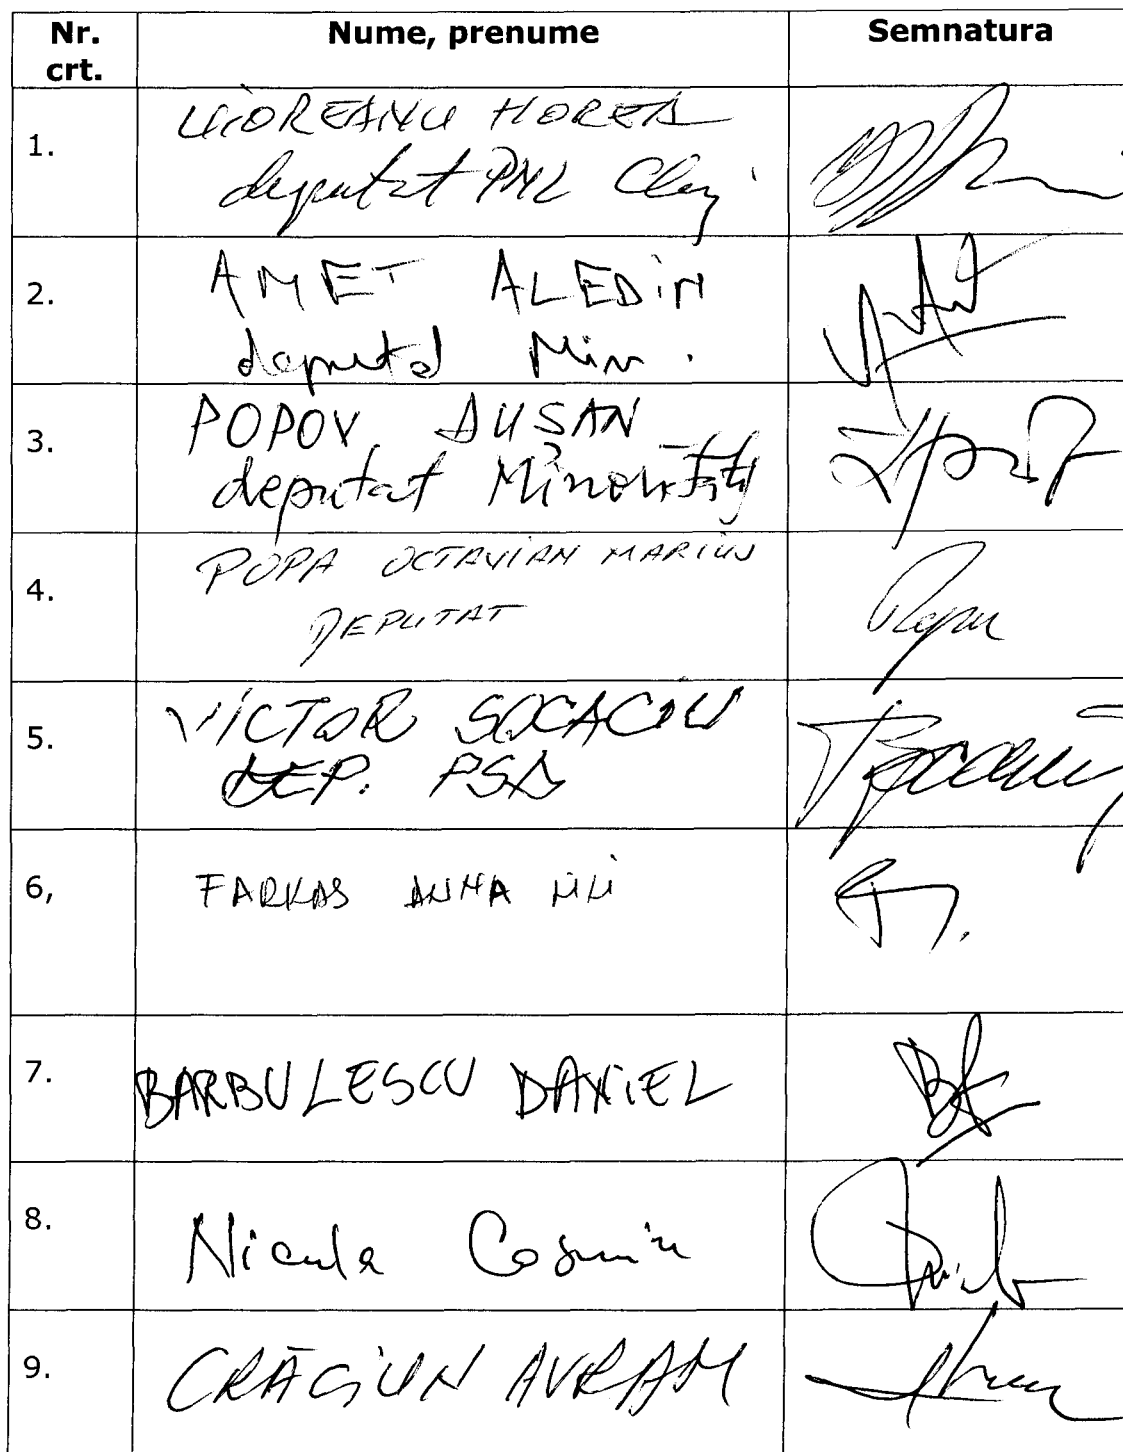 Nr. crt. Nume, prenume Semnatura
1. UIOREANU HOREA
deputat PNL Cluj
2. AMET ALEDIN
deputat Min.
3. POPOV DUSAN
deputat Minorități
4. POPA OCTAVIAN MARIUS
DEPUTAT
Popa
5. VICTOR SOCACIU
DEP. PSD
6, FARKAS ANNA LILI
7. BARBULESCU DANIEL
8. Nicula Cosmin
9. CRĂCIUN AVRAM